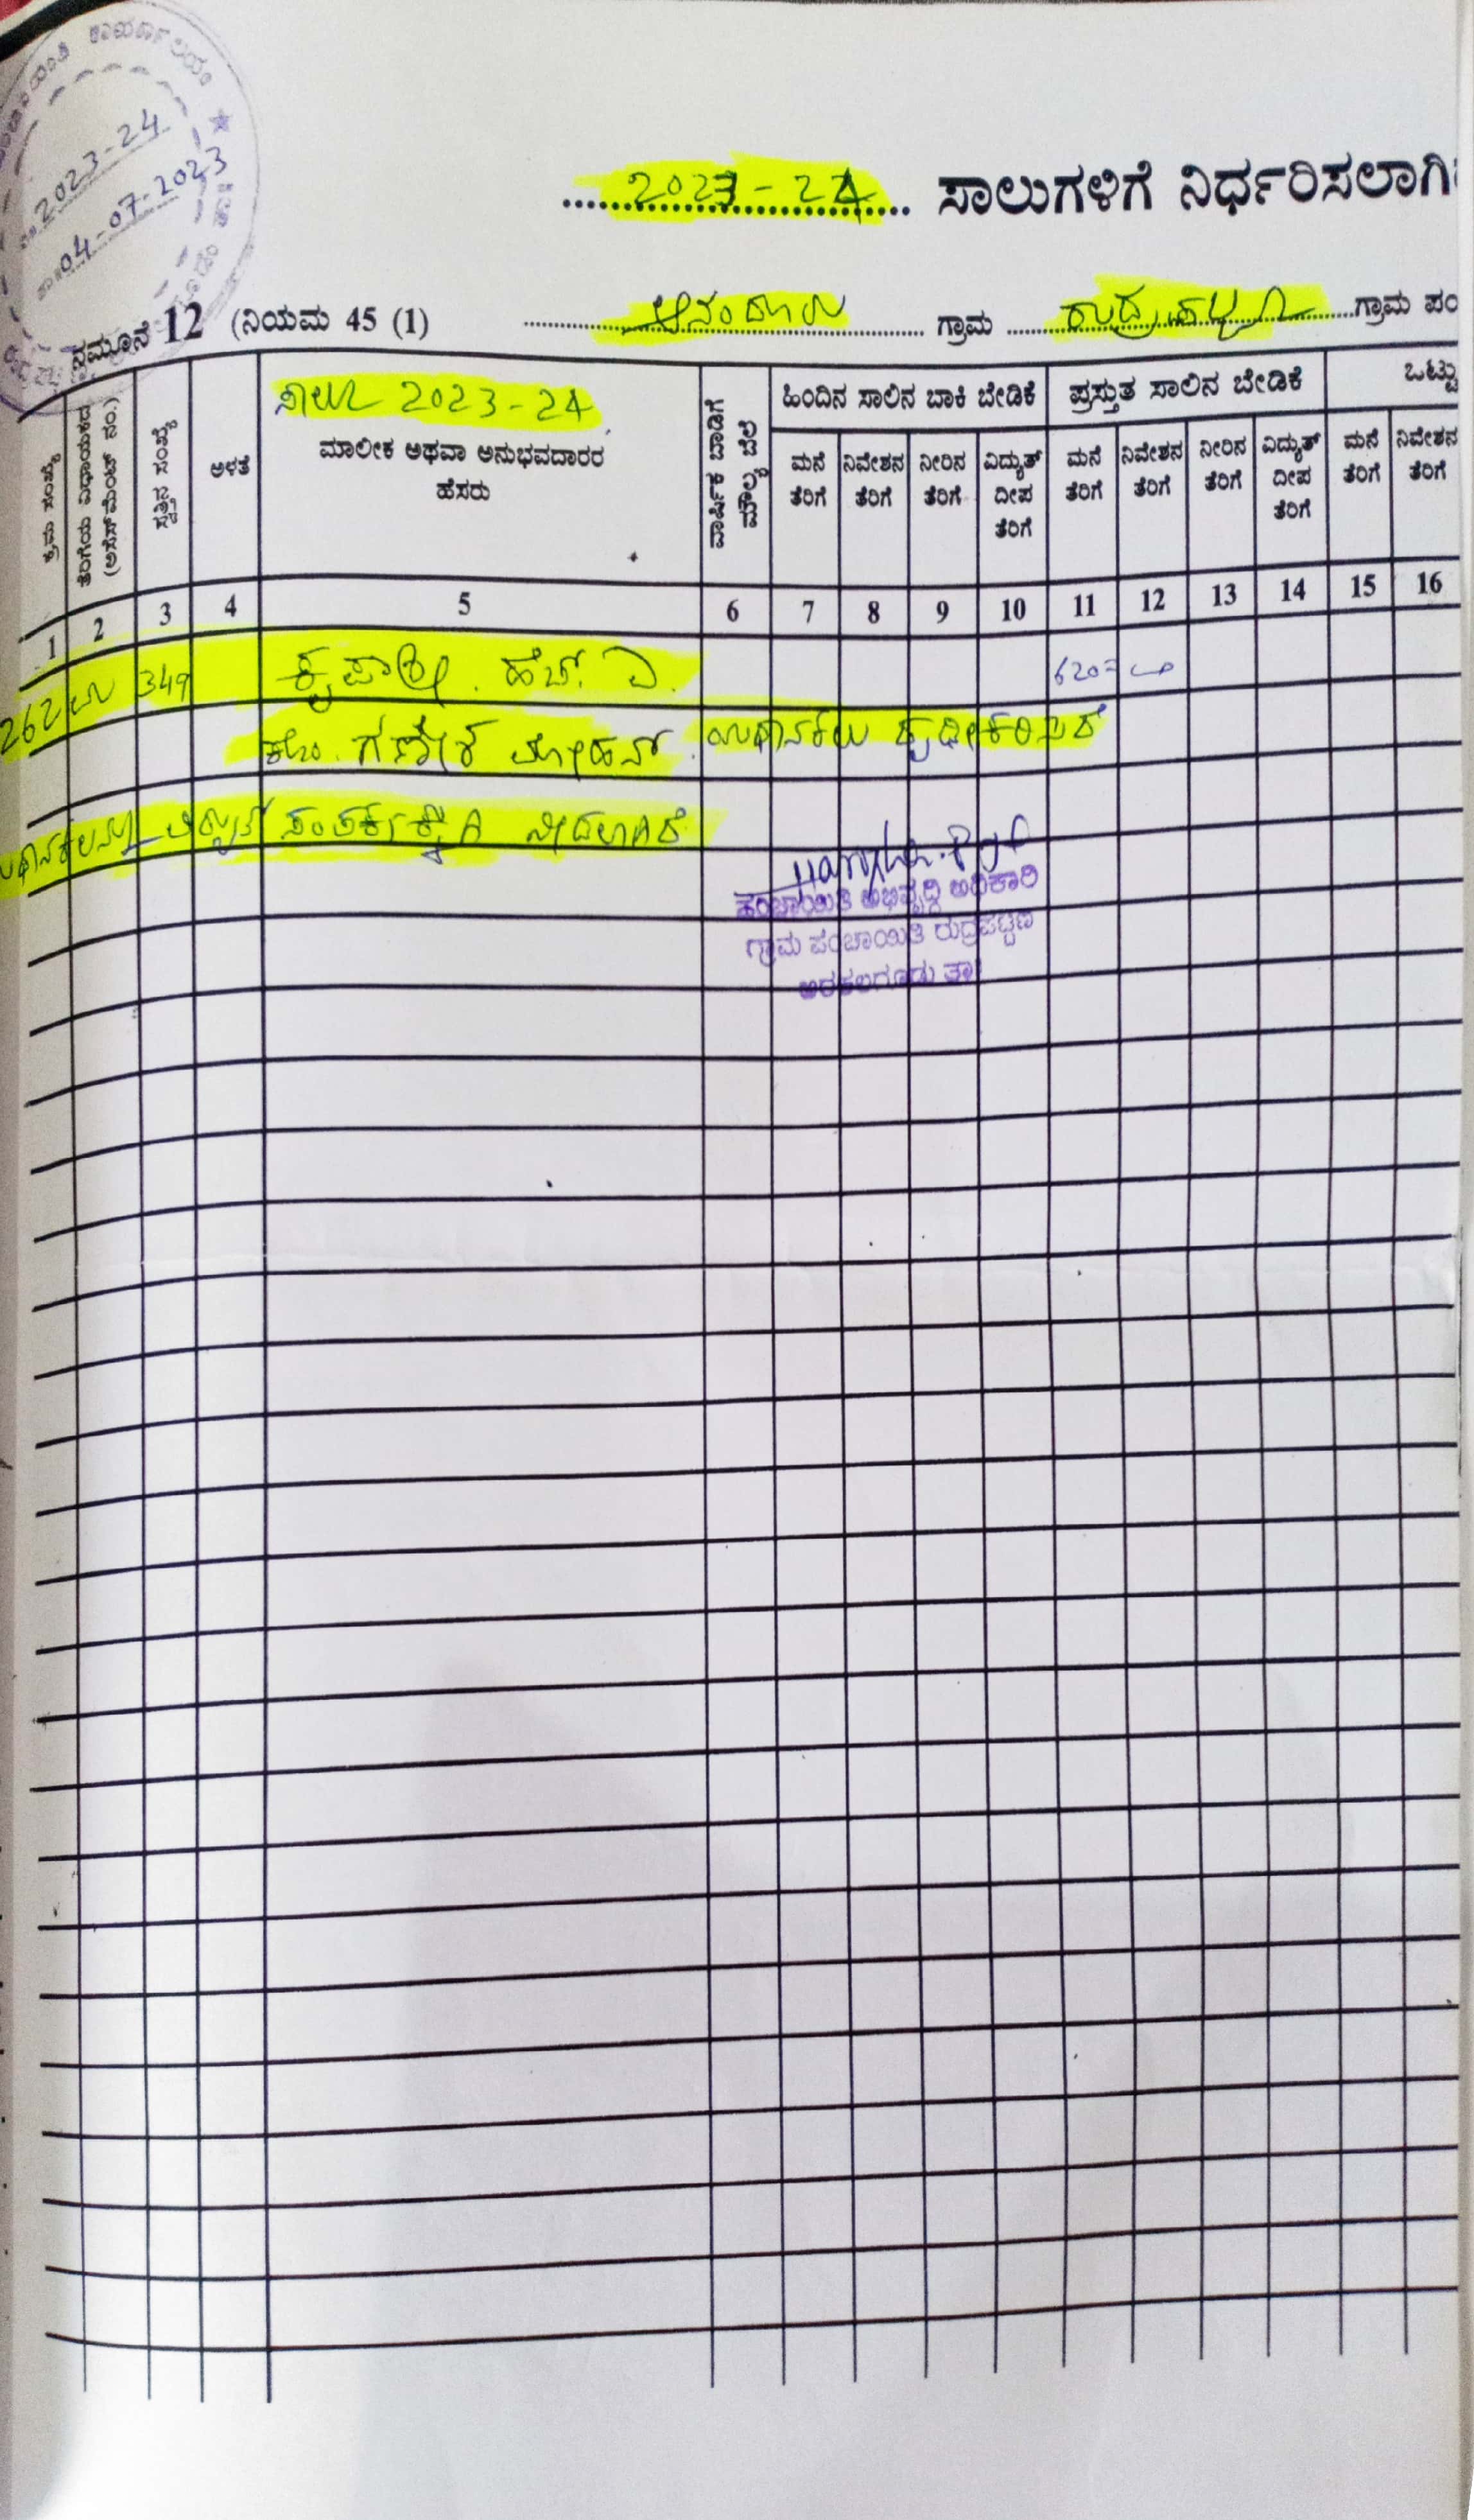 ಕಾರ್ಯಾಲಯ
2023-24
04-07-2023
2023-24 ಸಾಲುಗಳಿಗೆ ನಿರ್ಧರಿಸಲಾಗಿ
ನಮೂನೆ 12 (ನಿಯಮ 45 (1) ಗ್ರಾಮ ಗ್ರಾಮ ಪಂ
ಕ್ರಮ ಸಂಖ್ಯೆ
ತೆರಿಗೆಯ ವಿಧಾಯಕದ (ಅಸೆಸ್‌ಮೆಂಟ್ ನಂ.)
ಸ್ವತ್ತಿನ ಸಂಖ್ಯೆ
ಅಳತೆ
ಸಾಲು 2023-24
ಮಾಲೀಕ ಅಥವಾ ಅನುಭವದಾರರ
ಹೆಸರು
ವಾರ್ಷಿಕ ಬಾಡಿಗೆ ಮೌಲ್ಯ ಬೆಲೆ
ಹಿಂದಿನ ಸಾಲಿನ ಬಾಕಿ ಬೇಡಿಕೆ
ಮನೆ ತೆರಿಗೆ
ನಿವೇಶನ ತೆರಿಗೆ
ನೀರಿನ ತೆರಿಗೆ
ವಿದ್ಯುತ್ ದೀಪ ತೆರಿಗೆ
ಪ್ರಸ್ತುತ ಸಾಲಿನ ಬೇಡಿಕೆ
ಮನೆ ತೆರಿಗೆ
ನಿವೇಶನ ತೆರಿಗೆ
ನೀರಿನ ತೆರಿಗೆ
ವಿದ್ಯುತ್ ದೀಪ ತೆರಿಗೆ
ಒಟ್ಟು
ಮನೆ ತೆರಿಗೆ
ನಿವೇಶನ ತೆರಿಗೆ
1 2 3 4 5 6 7 8 9 10 11 12 13 14 15 16
262 349 ಹೆಚ್. 620=
ಕೋಂ. ಗಣೇಶ
ಪಂಚಾಯಿತಿ ಅಭಿವೃದ್ಧಿ ಅಧಿಕಾರಿ
ಗ್ರಾಮ ಪಂಚಾಯಿತಿ ರುದ್ರಪಟ್ಟಣ
ಅರಕಲಗೂಡು ತಾ||